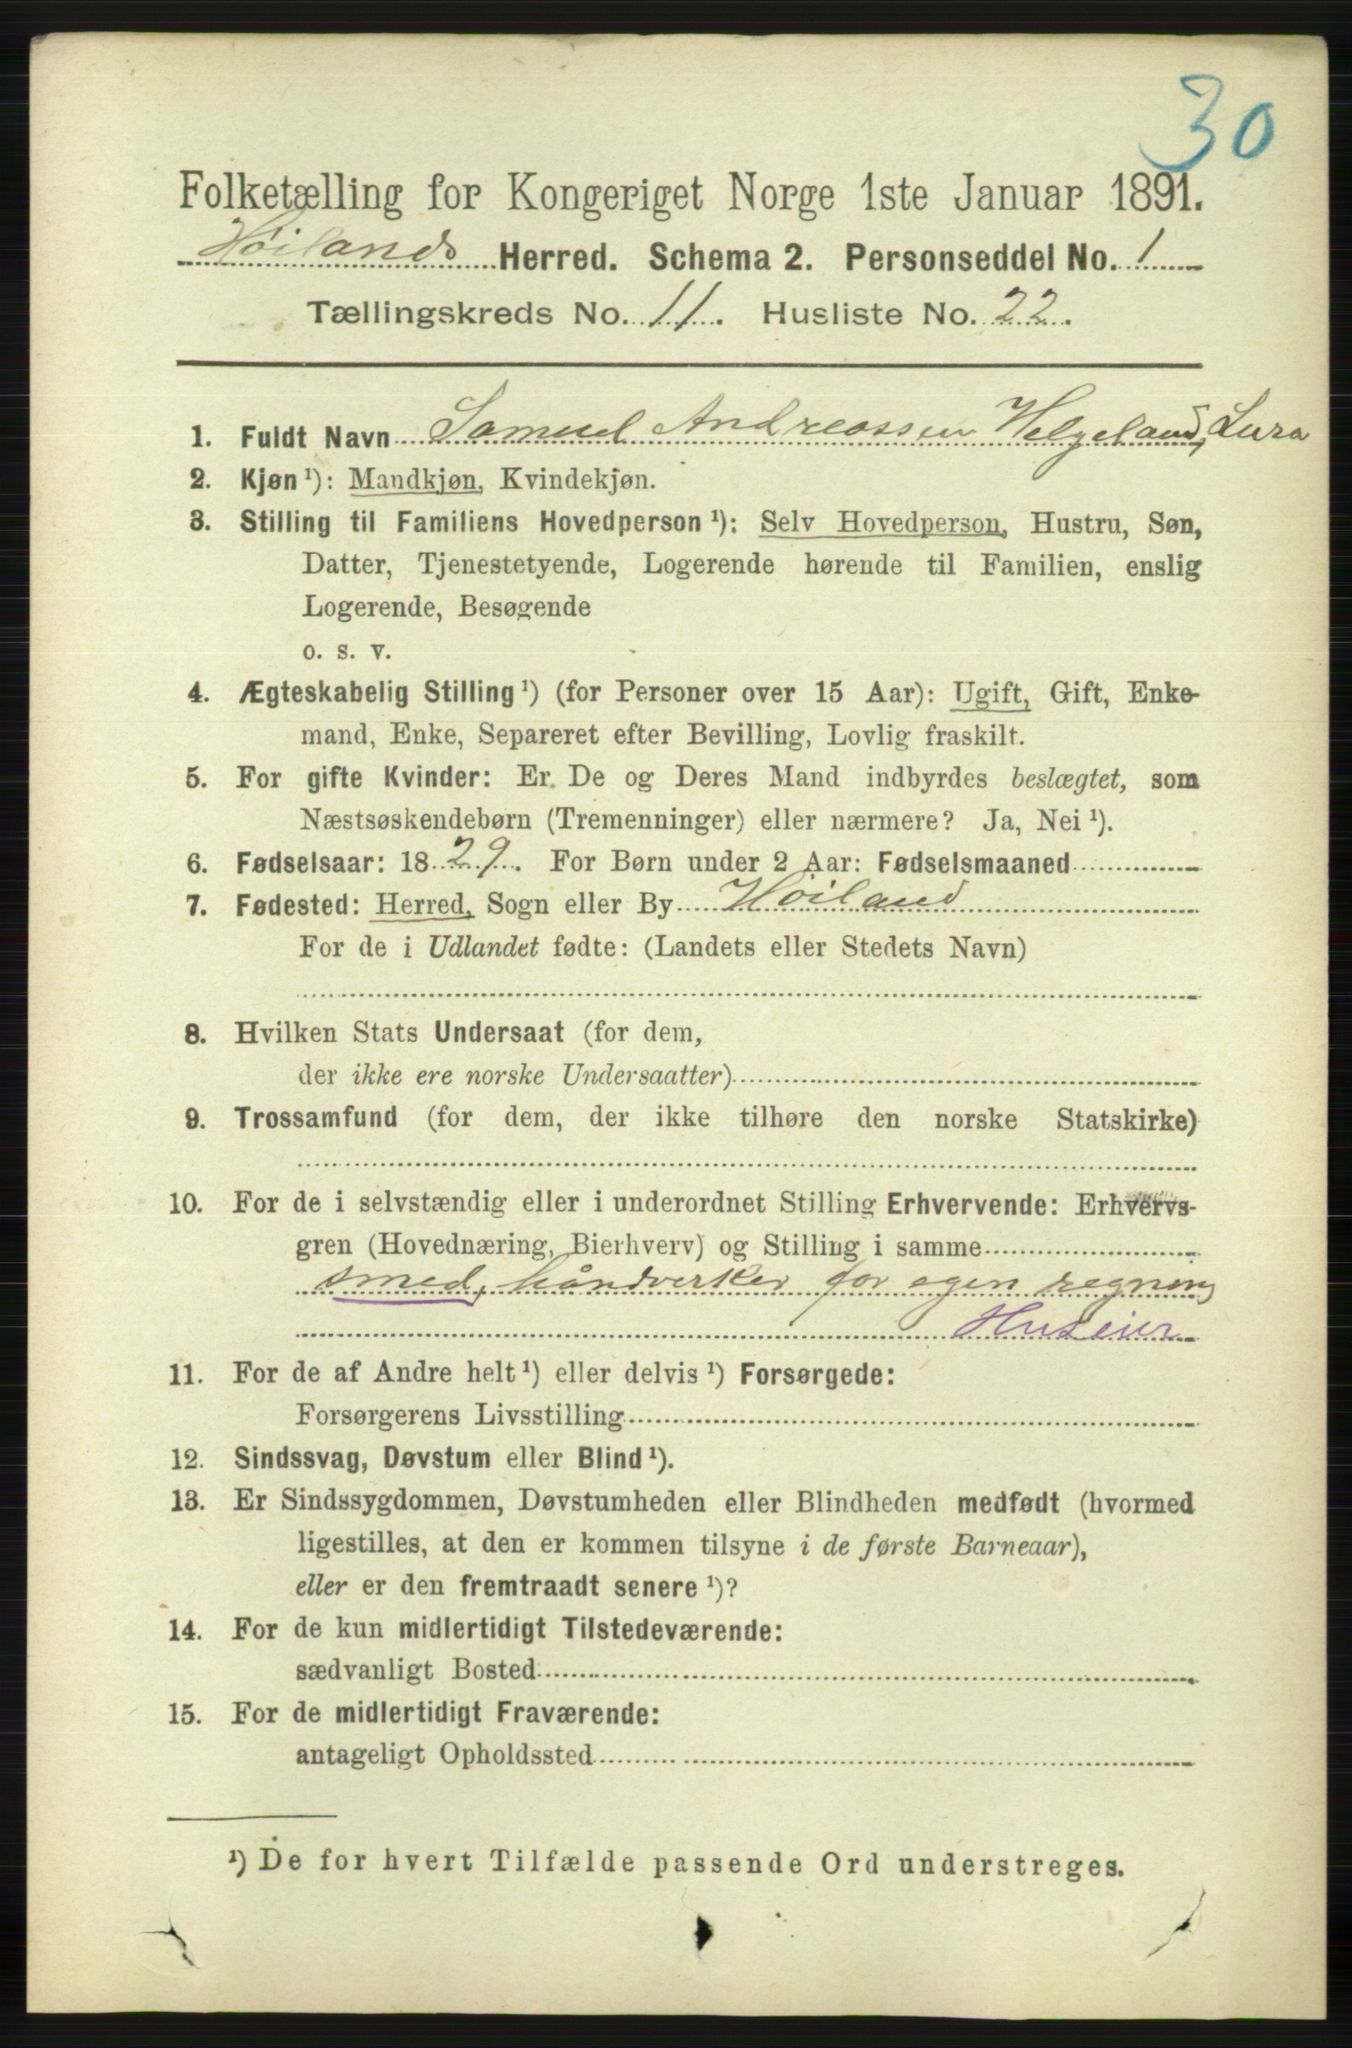 30
Folketælling for Kongeriget Norge 1ste Januar 1891.
Høilands Herred. Schema 2. Personseddel No. 1
Tællingskreds No. 11. Husliste No. 22.
1. Fuldt Navn Samuel Andreassen Helgeland, Lura
2. Kjøn ¹): Mandkjøn, Kvindekjøn.
3. Stilling til Familiens Hovedperson ¹): Selv Hovedperson, Hustru, Søn,
Datter, Tjenestetyende, Logerende hørende til Familien, enslig
Logerende, Besøgende
o. s. v.
4. Ægteskabelig Stilling ¹) (for Personer over 15 Aar): Ugift, Gift, Enke-
mand, Enke, Separeret efter Bevilling, Lovlig fraskilt.
5. For gifte Kvinder: Er De og Deres Mand indbyrdes beslægtet, som
Næstsøskendebørn (Tremenninger) eller nærmere? Ja, Nei ¹).
6. Fødselsaar: 1829. For Børn under 2 Aar: Fødselsmaaned
7. Fødested: Herred, Sogn eller By Høiland
For de i Udlandet fødte: (Landets eller Stedets Navn)
8. Hvilken Stats Undersaat (for dem,
der ikke ere norske Undersaatter)
9. Trossamfund (for dem, der ikke tilhøre den norske Statskirke)
10. For de i selvstændig eller i underordnet Stilling Erhvervende: Erhvervs-
gren (Hovednæring, Bierhverv) og Stilling i samme
smed, håndverker for egen regning
Huseier
11. For de af Andre helt ¹) eller delvis ¹) Forsørgede:
Forsørgerens Livsstilling
12. Sindssvag, Døvstum eller Blind ¹).
13. Er Sindssygdommen, Døvstumheden eller Blindheden medfødt (hvormed
ligestilles, at den er kommen tilsyne i de første Barneaar),
eller er den fremtraadt senere ¹)?
14. For de kun midlertidigt Tilstedeværende:
sædvanligt Bosted
15. For de midlertidigt Fraværende:
antageligt Opholdssted
¹) De for hvert Tilfælde passende Ord understreges.